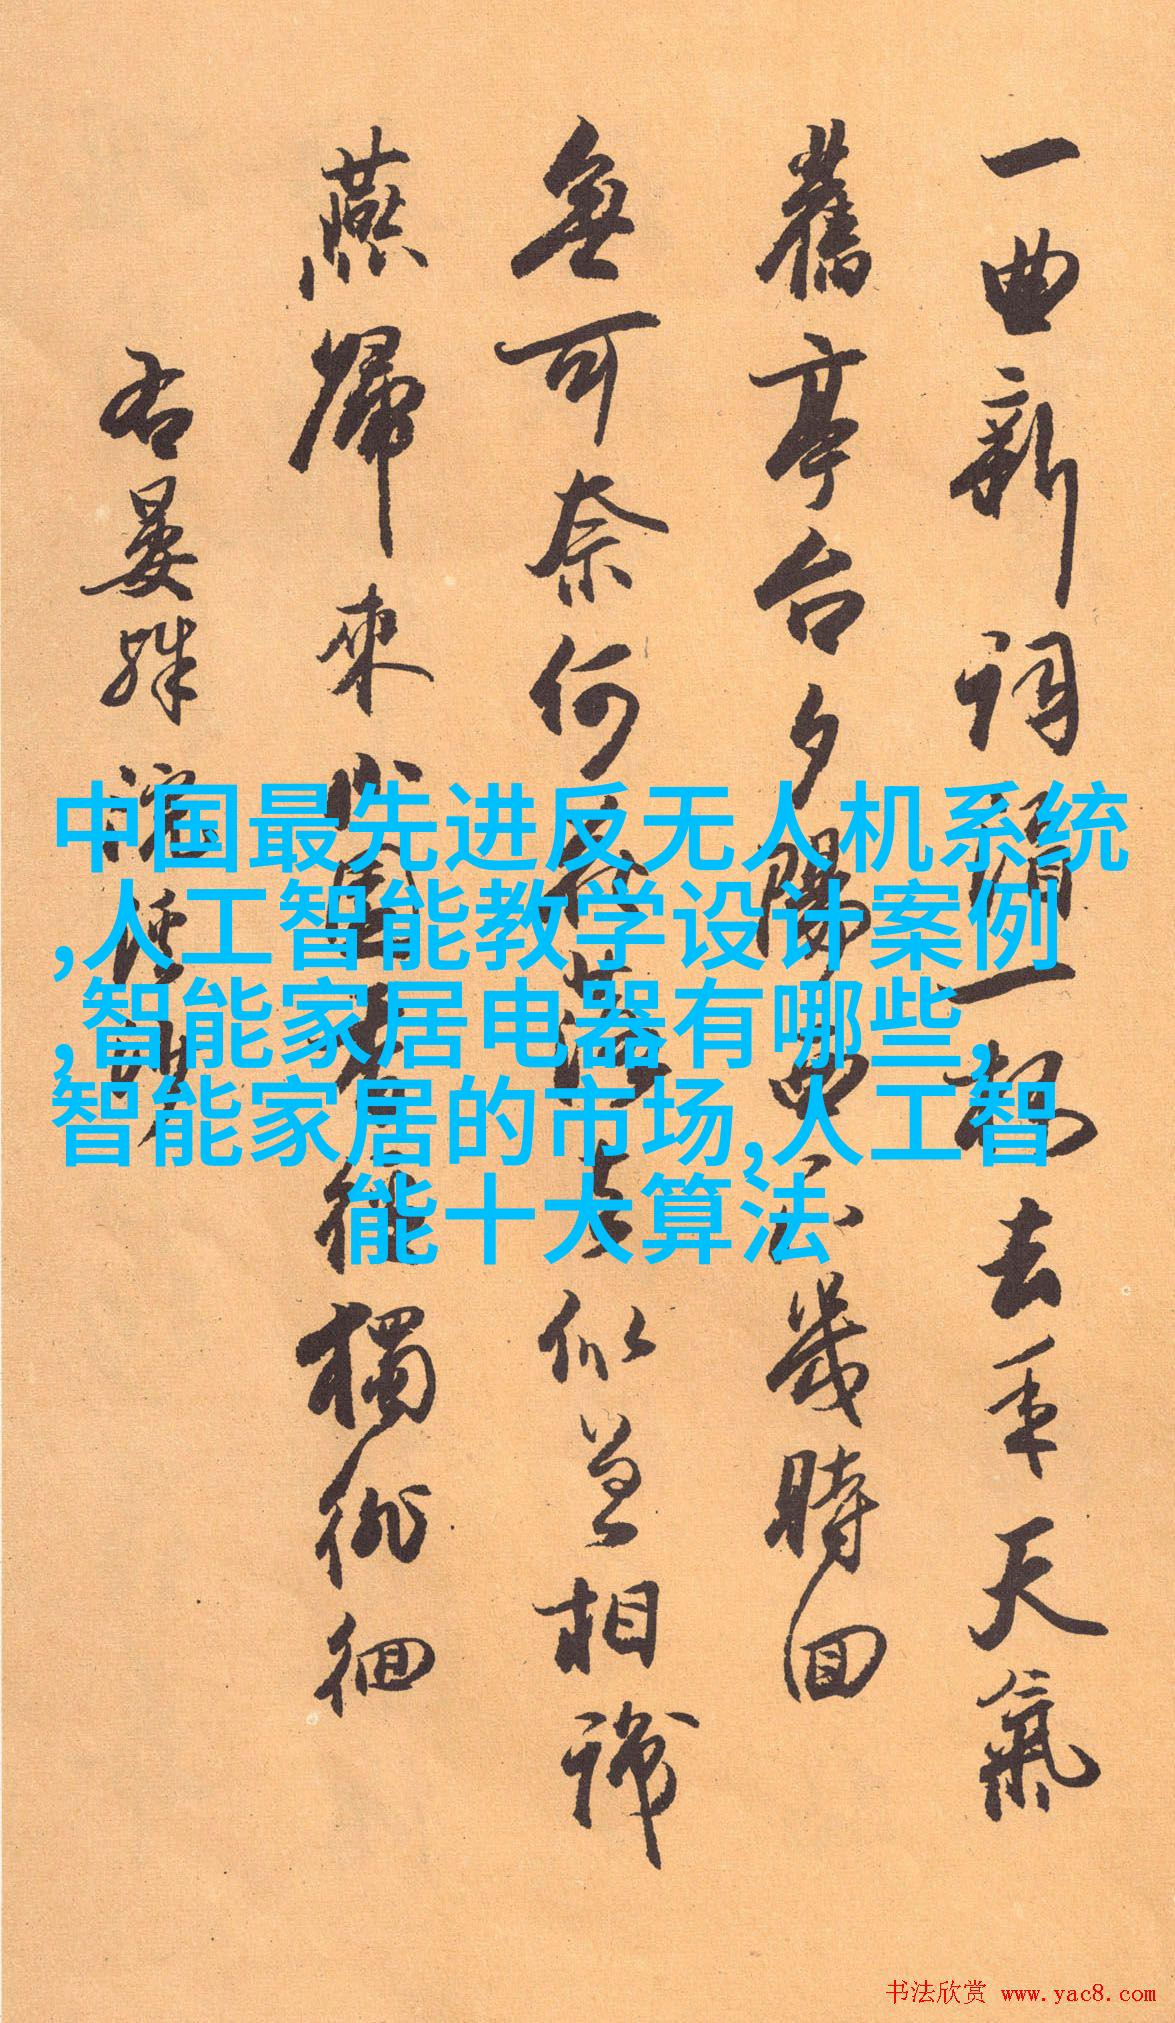 一曲新詞酒一杯去年天氣
舊亭台夕陽西下幾時回
無可奈何花落去似曾相識
燕歸來小園香徑獨徘徊
右晏殊浣溪沙
中国最先进反无人机系统
,人工智能教学设计案例
,智能家居电器有哪些,
智能家居的市场,人工智
能十大算法
书法欣赏 www.yac8.com